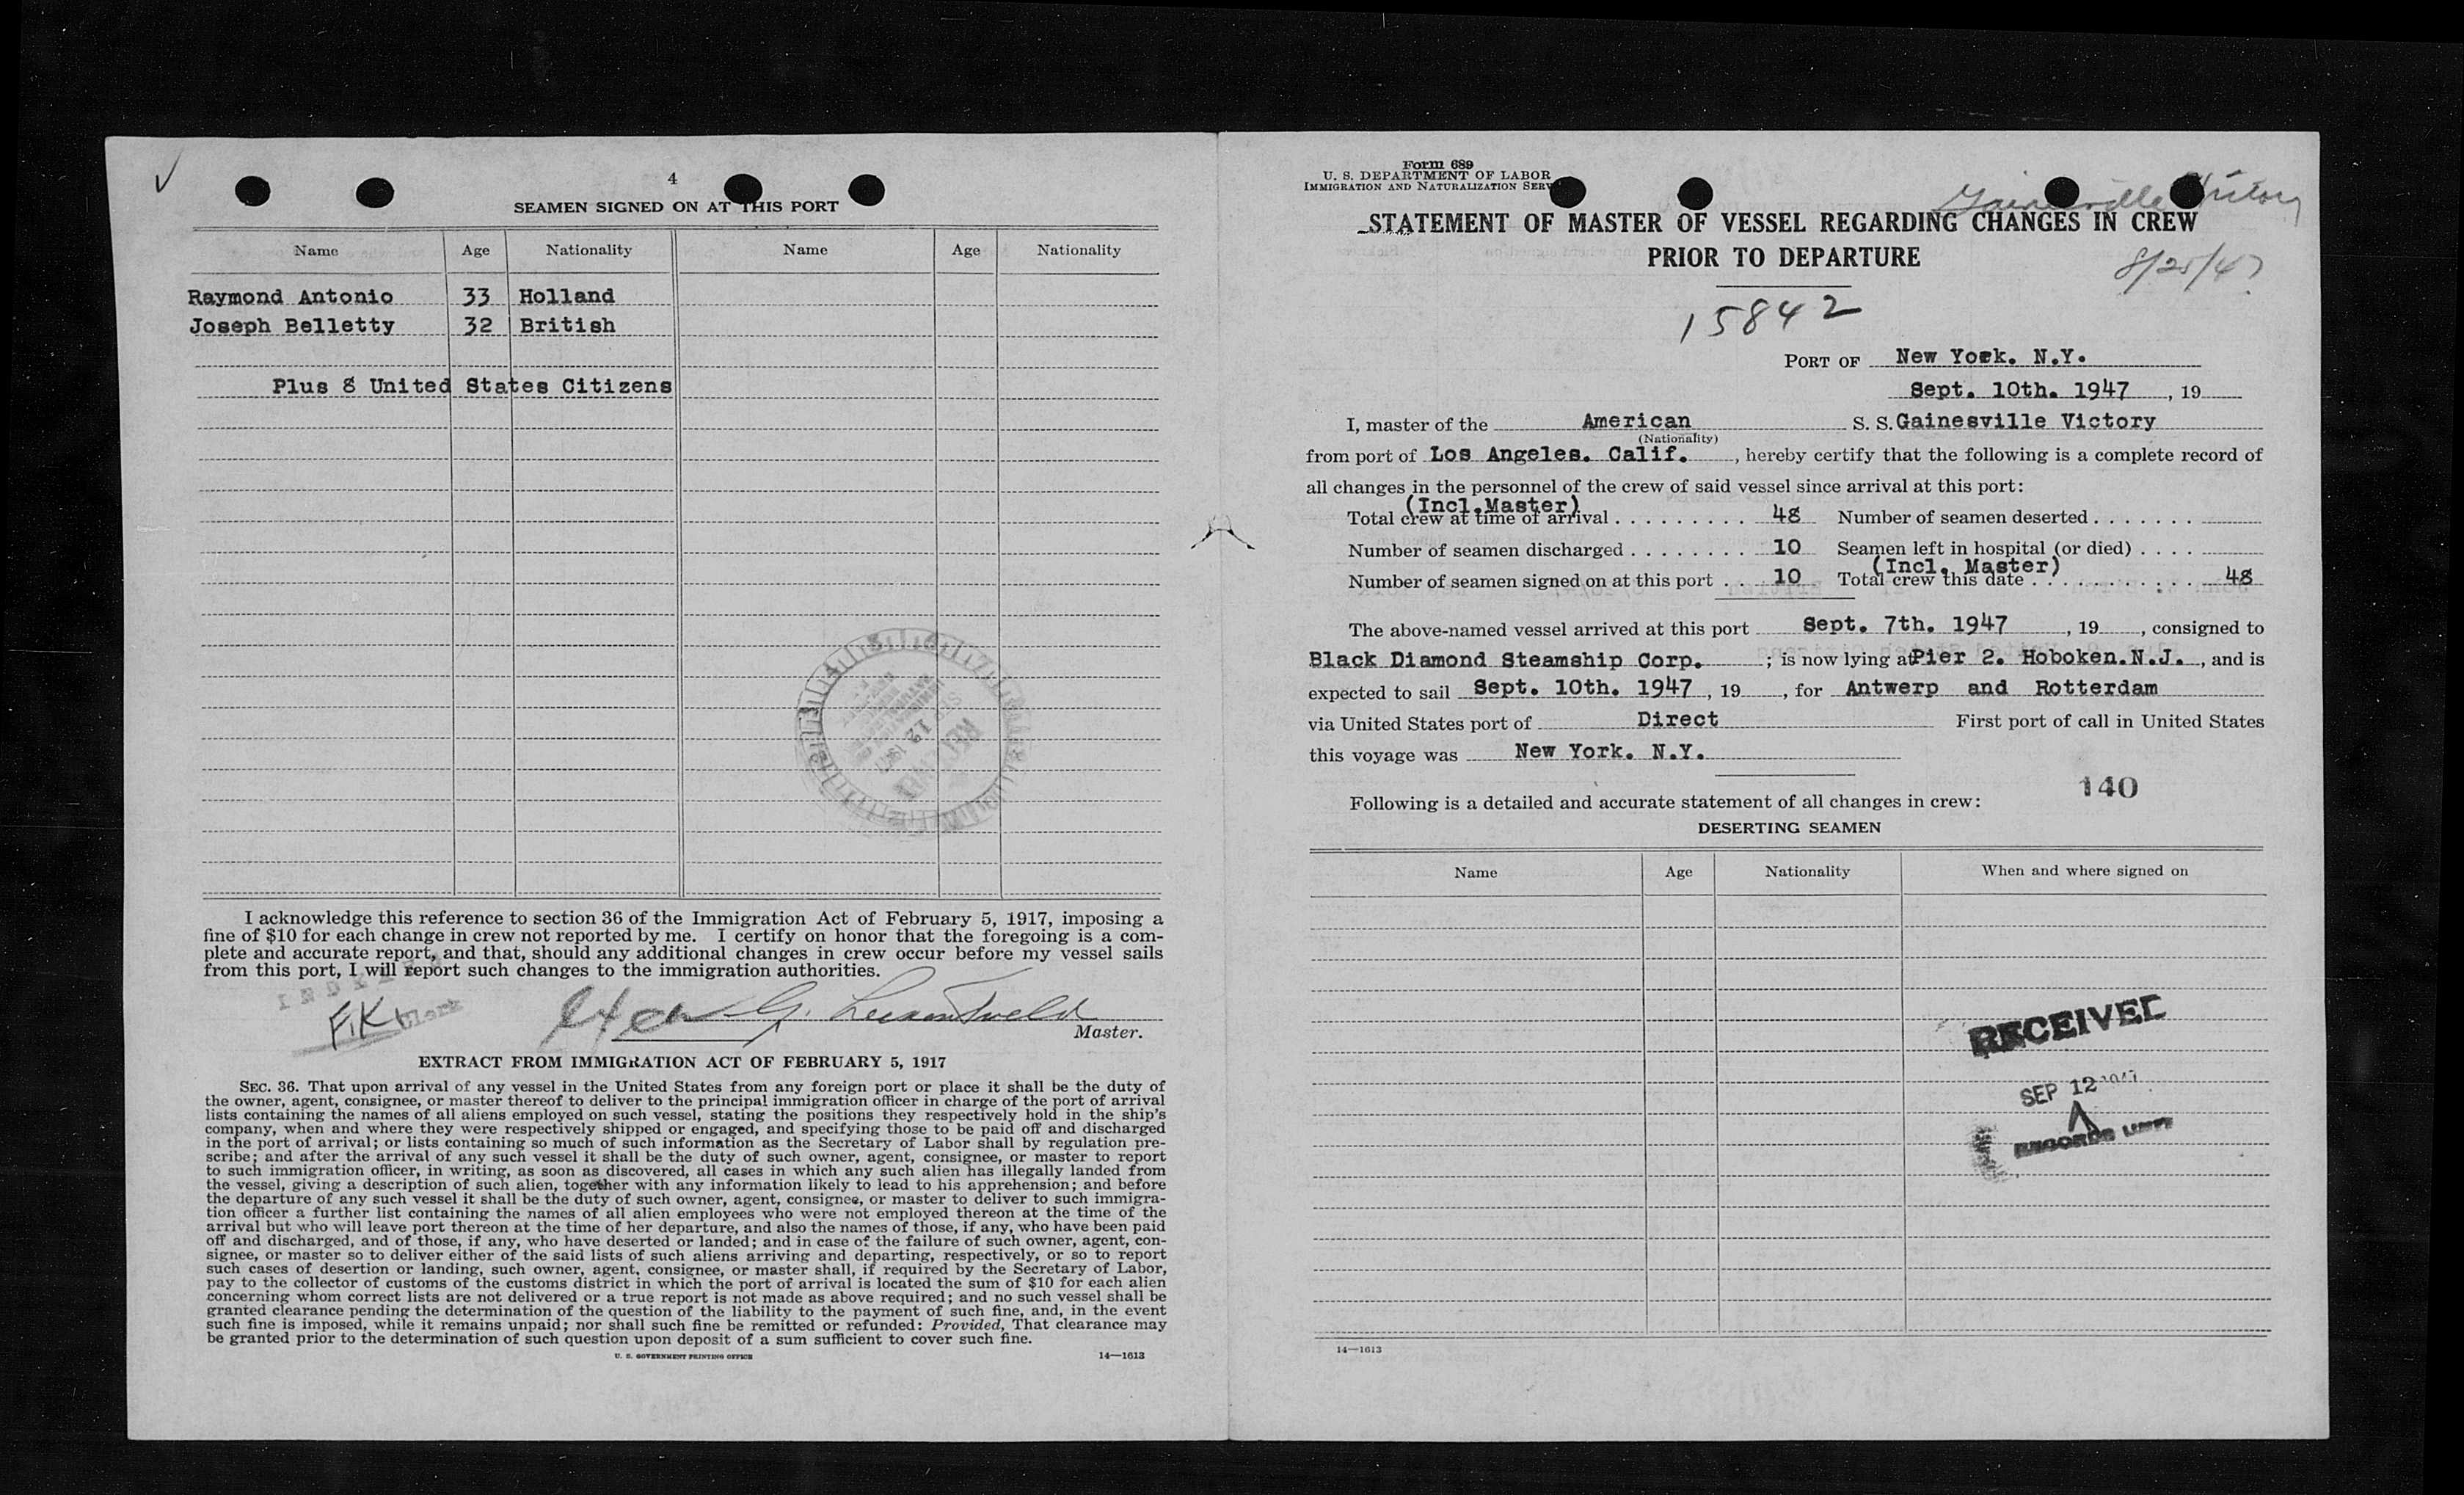 4
SEAMEN SIGNED ON AT THIS PORT
Name Age Nationality Name Age Nationality
Raymond Antonio 33 Holland
Joseph Belletty 32 British
Plus 8 United States Citizens
I acknowledge this reference to section 36 of the Immigration Act of February 5, 1917, imposing a
fine of $10 for each change in crew not reported by me. I certify on honor that the foregoing is a com-
plete and accurate report, and that, should any additional changes in crew occur before my vessel sails
from this port, I will report such changes to the immigration authorities.
F.K. Clerk
Master.
EXTRACT FROM IMMIGRATION ACT OF FEBRUARY 5, 1917
SEC. 36. That upon arrival of any vessel in the United States from any foreign port or place it shall be the duty of
the owner, agent, consignee, or master thereof to deliver to the principal immigration officer in charge of the port of arrival
lists containing the names of all aliens employed on such vessel, stating the positions they respectively hold in the ship's
company, when and where they were respectively shipped or engaged, and specifying those to be paid off and discharged
in the port of arrival; or lists containing so much of such information as the Secretary of Labor shall by regulation pre-
scribe; and after the arrival of any such vessel it shall be the duty of such owner, agent, consignee, or master to report
to such immigration officer, in writing, as soon as discovered, all cases in which any such alien has illegally landed from
the vessel, giving a description of such alien, together with any information likely to lead to his apprehension; and before
the departure of any such vessel it shall be the duty of such owner, agent, consignee, or master to deliver to such immigra-
tion officer a further list containing the names of all alien employees who were not employed thereon at the time of the
arrival but who will leave port thereon at the time of her departure, and also the names of those, if any, who have been paid
off and discharged, and of those, if any, who have deserted or landed; and in case of the failure of such owner, agent, con-
signee, or master so to deliver either of the said lists of such aliens arriving and departing, respectively, or so to report
such cases of desertion or landing, such owner, agent, consignee, or master shall, if required by the Secretary of Labor,
pay to the collector of customs of the customs district in which the port of arrival is located the sum of $10 for each alien
concerning whom correct lists are not delivered or a true report is not made as above required; and no such vessel shall be
granted clearance pending the determination of the question of the liability to the payment of such fine, and, in the event
such fine is imposed, while it remains unpaid; nor shall such fine be remitted or refunded: Provided, That clearance may
be granted prior to the determination of such question upon deposit of a sum sufficient to cover such fine.
U. S. GOVERNMENT PRINTING OFFICE 14—1613
Form 689
U. S. DEPARTMENT OF LABOR
IMMIGRATION AND NATURALIZATION SERV
Gainesville Victory
STATEMENT OF MASTER OF VESSEL REGARDING CHANGES IN CREW
PRIOR TO DEPARTURE
8/25/47
15842
PORT OF New York. N.Y.
Sept. 10th. 1947, 19
I, master of the American S. S. Gainesville Victory
(Nationality)
from port of Los Angeles. Calif. , hereby certify that the following is a complete record of
all changes in the personnel of the crew of said vessel since arrival at this port:
(Incl.Master)
Total crew at time of arrival . . . . . . . . . 48 Number of seamen deserted . . . . . . .
Number of seamen discharged . . . . . . . . 10 Seamen left in hospital (or died) . . . .
(Incl. Master)
Number of seamen signed on at this port . . 10 Total crew this date . . . . . . . . . . . 48
The above-named vessel arrived at this port Sept. 7th. 1947 , 19 , consigned to
Black Diamond Steamship Corp. ; is now lying at Pier 2. Hoboken.N.J. , and is
expected to sail Sept. 10th. 1947 , 19 , for Antwerp and Rotterdam
via United States port of Direct First port of call in United States
this voyage was New York. N.Y.
140
Following is a detailed and accurate statement of all changes in crew:
DESERTING SEAMEN
Name Age Nationality When and where signed on
RECEIVED
SEP 12 1947
RECORDS UNIT
14—1613